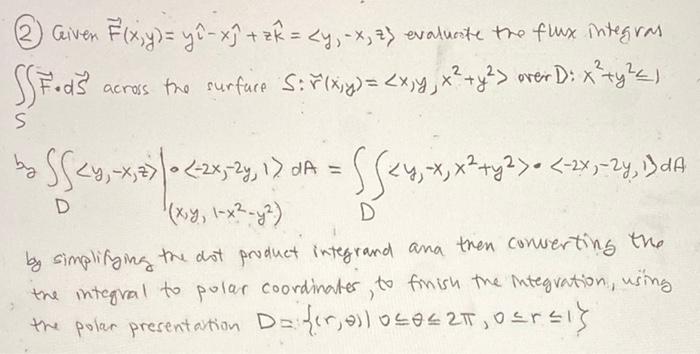 ② Given F⃗(x,y) = yî - xĵ + zk̂ = <y, -x, z> evaluate the flux integral
∬_S F⃗ • dS⃗ across the surface S: r⃗(x,y) = <x, y, x²+y²> over D: x²+y² ≤ 1
by ∬_D <y, -x, z>|_(x,y, 1-x²-y²) • <-2x, -2y, 1> dA = ∬_D <y, -x, x²+y²> • <-2x, -2y, 1> dA
by simplifying the dot product integrand and then converting the
the integral to polar coordinates, to finish the integration, using
the polar presentation D = {(r, θ) | 0 ≤ θ ≤ 2π, 0 ≤ r ≤ 1}